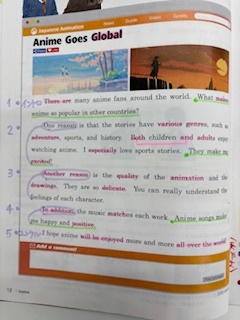 Japanese Animation
News Guide Videos
Anime Goes Global
1 イントロ There are many anime fans around the world. What makes
anime so popular in other countries?
2 One reason is that the stories have various genres, such as
adventure, sports, and history. Both children and adults enjoy
watching anime. I especially love sports stories. They make me
excited!
3 Another reason is the quality of the animation and the
drawings. They are so delicate. You can really understand the
feelings of each character.
4 In addition, the music matches each work. Anime songs make
me happy and positive.
5 I hope anime will be enjoyed more and more all over the world!
Add a comment
12